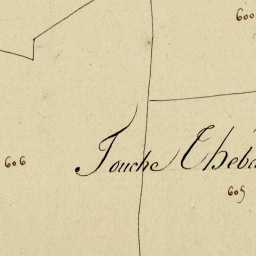 600
606
Touche Théba
605